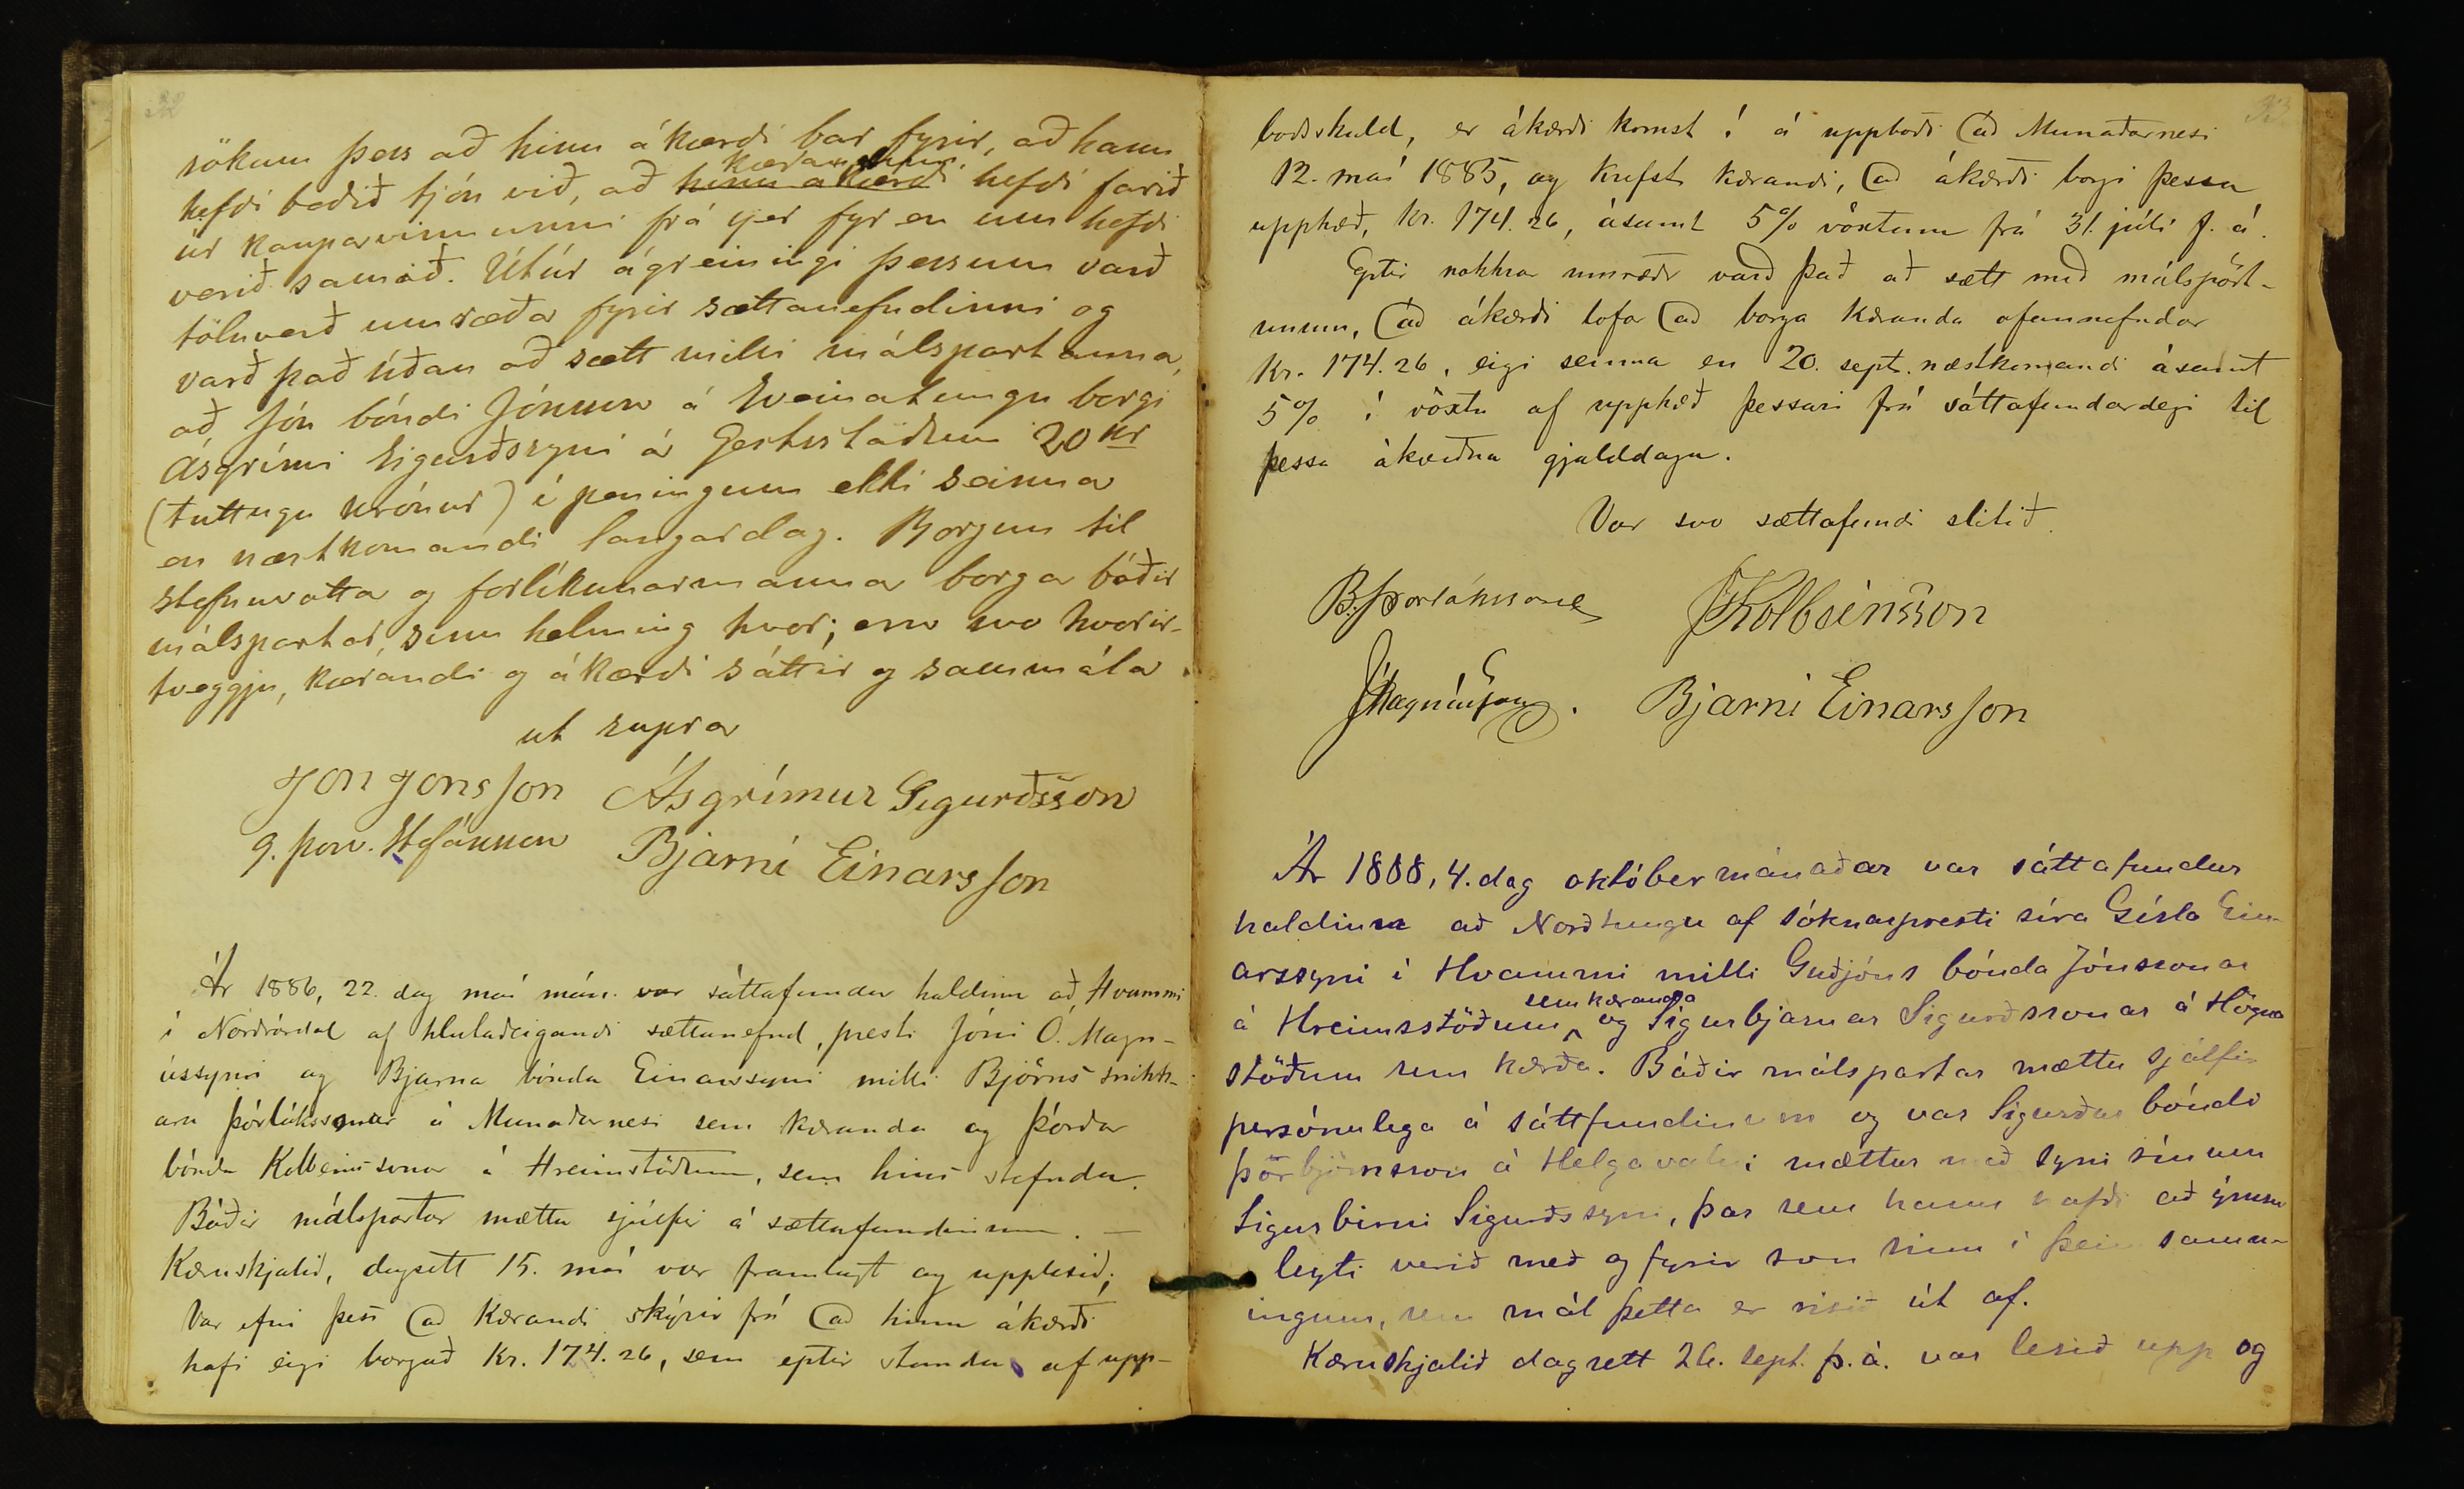 32
sökum þess að hinn ákærdi bar fyrir, að hann
hefdi bedið tjón við, að hinn ákærdi kærandinn hefdi farið
úr kaupavinnunni frá sjer fyr en um hefdi
verið samið. Útúr ágreiningi þessum varð
töluverð umræða fyrir sættanefndinni og
varð það síðan að sætt milli málspartanna,
að Jón bóndi Jónsson á Sveinatungu borgi
Ásgrími Sigurðssyni á Gestsstöðum 20 kr
(tuttugu krónur) í peningum ekki seinna
en næstkomandi laugardag. Borgun til
stefnuvotta og forlíkunarmanna borga báðir
málspartar, sinn helming hvor; eru svo hvorir-
tveggju, kærandi og ákærdi sáttir og sammála.
ut supra
Jón Jónsson Ásgrímur Sigurðsson
G. Þorv. Stefánsson Bjarni Einarsson
Ár 1886, 22. dag maí mán. var sáttafundur haldinn að Hvammi
í Norðrárdal af hlutaðeigandi sættanefnd, presti Jóni Ó. Magn-
ússyni og Bjarna bónda Einarssyni milli Björns snikk-
ara Þórlákssonar á Munaðarnesi sem kæranda og Þórðar
bónda Kolbeinssonar á Hreimstöðum, sem hins stefnda.
Báðir málspartar mættu sjálfir á sættafundinum. —
Kæruskjalið, dagsett 15. maí var framlagt og upplesið;
Var efni þess að kærandi skýrir frá að hinn ákærði
hafi eigi borgað Kr. 174.26, sem eptir standa af upp-
33
boðsskuld, er ákærði komst í á uppboði að Munaðarnesi
12. maí 1885, og krefst kærandi, að ákærði borgi þessa
upphæð, kr. 174.26, ásamt 5% vöxtum frá 31. júlí f. á.
Eptir nokkrar umræður varð það að sætt með málspört-
unum, að ákærði lofar að borga kæranda ofannefndar
Kr. 174.26, eigi seinna en 20. sept. næstkomandi ásamt
5% í vöxtu af upphæð þessari frá sáttafundardegi til
þessa ákveðna gjalddaga.
Var svo sættafundi slitið.
B. Þorláksson Þ Kolbeinsson
J Magnússon. Bjarni Einarsson
Ár 1888, 4. dag októbermánaðar var sáttafundur
haldinn að Norðtungu af sóknarpresti síra Gísla Ein-
arssyni í Hvammi milli Guðjóns bónda Jónssonar
á Hreimsstöðum sem kæranda og Sigurbjarnar Sigurðssonar á Högna
stöðum sem kærða. Báðir málspartar mættu sjálfir
persónulega á sáttfundinum og var Sigurður bóndi
Þorbjörnsson á Helgavatni mættur með syni sínum
Sigurbirni Sigurðssyni, þar sem hann hafði að ýmsu
leyti verið með og fyrir son sinn í þeim samn-
ingum, sem mál þetta er risið út af.
Kæruskjalið dagsett 26. sept. þ. á. var lesið upp og